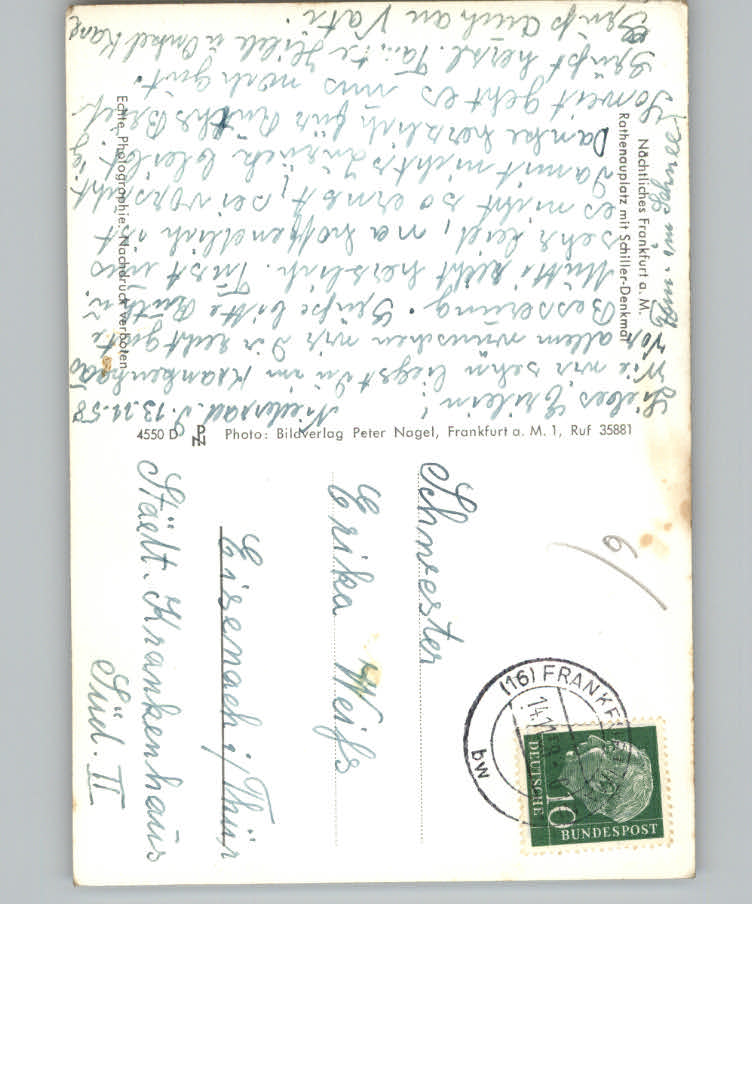 Nächtliches Frankfurt a. M.
Rathenauplatz mit Schiller-Denkmal
Niederrad. d. 13.11.58
Liebes Erilein!
Wie wir sehn liegst du im Krankenhaus
Vor allem wünschen wir Dir recht gute
Besserung. Grüße bitte Ruth u.
Mutti recht herzlich. Tust uns
sehr leid, na hoffendlich ist
es nicht so ernst, sei vorsichtig
damit nichts zurück bleibt.
Danke herzlich für Ruths Brief.
Soweit geht es uns noch gut.
Grüßt herzl. Tante Hilde u Onkel Karl
Gruß auch an Vati.
Echte Photographie. Nachdruck verboten
4550 D PN Photo: Bildverlag Peter Nagel, Frankfurt a. M. 1, Ruf 35881
Schwester
Erika Weiß
Eisenach i/Thür
Städt. Krankenhaus
Süd. II
6
(16) FRANKF
14.11.58
bw
DEUTSCHE
10
BUNDESPOST